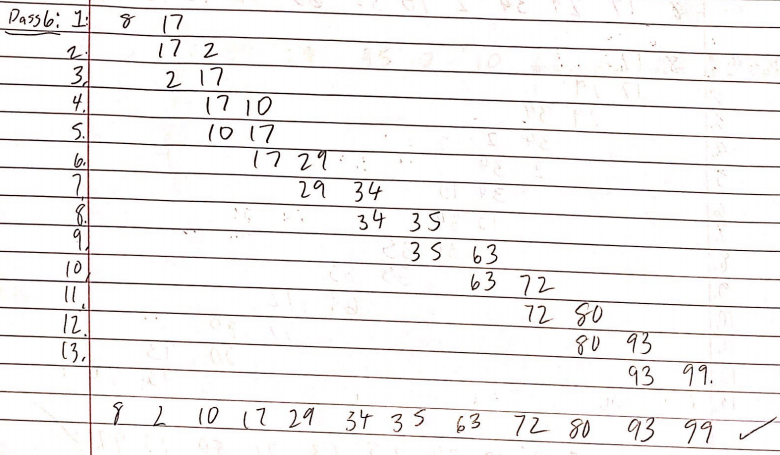 Pass 6: 1. 8 17
2. 17 2
3. 2 17
4. 17 10
5. 10 17
6. 17 29
7 29 34
8. 34 35
9. 35 63
10. 63 72
11. 72 80
12. 80 93
13. 93 99.
8 2 10 17 29 34 35 63 72 80 93 99 ✓